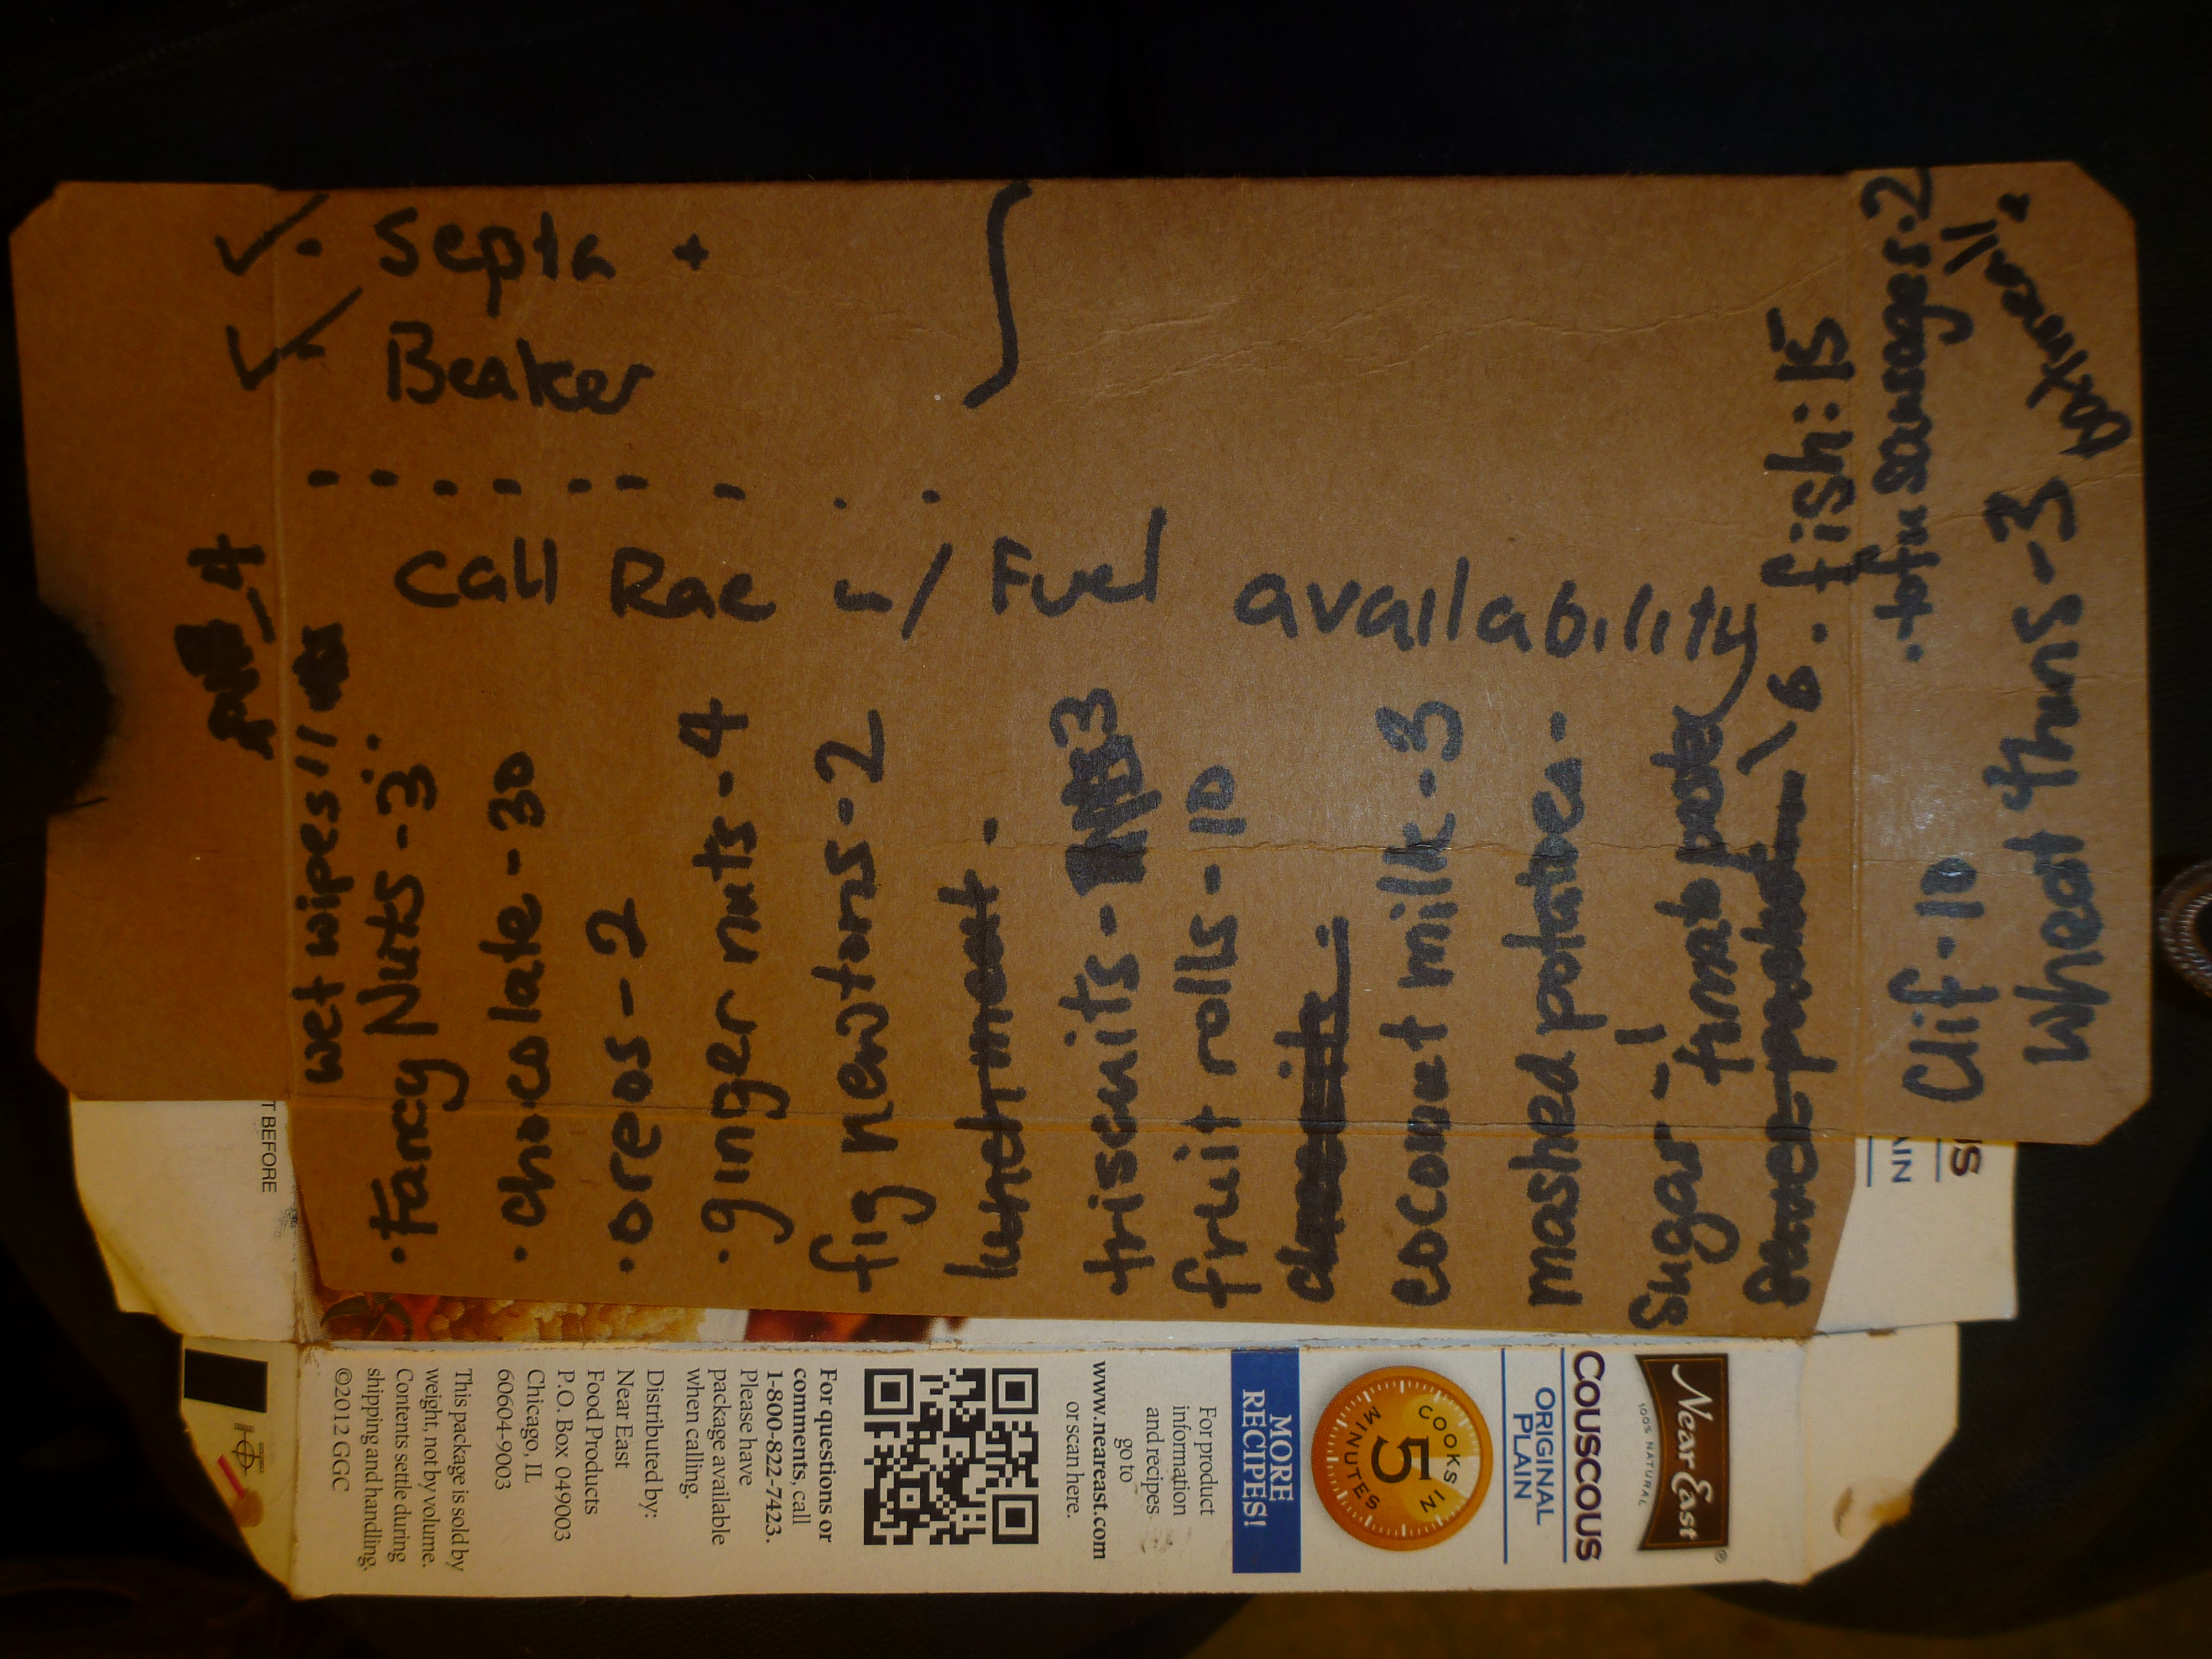 Septa +
Beaker
Call Rae w/ Fuel availability
4
wet wipes 11
• Fancy Nuts - 3
• chocolate - 30
• oreos - 2
• ginger nuts - 4
fig newtons - 2
lunch meat
triscuits - 3
fruit rolls - 10
coconut milk - 3
mashed potatoes -
sugar - 1
tomato paste 6
• fish: 15
• tofu sausages. 2
Clif - 10
Wheat thins - 3
oatmeal:
T BEFORE
US
AIN
Near East®
100% NATURAL
COUSCOUS
ORIGINAL
PLAIN
COOKS IN
5
MINUTES
MORE
RECIPES!
For product
information
and recipes
go to
www.neareast.com
or scan here.
For questions or
comments, call
1-800-822-7423.
Please have
package available
when calling.
Distributed by:
Near East
Food Products
P.O. Box 049003
Chicago, IL
60604-9003
This package is sold by
weight, not by volume.
Contents settle during
shipping and handling.
©2012 GGC